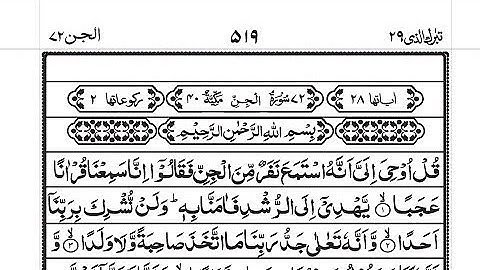 تبٰرك الذی ۲۹ ۵۱۹ الجن ۷۲
اٰیاتها ۲۸ ۷۲ سُوْرَةُ الْجِنِّ مَكِّيَّةٌ ۴۰ رکوعاتها ۲
بِسْمِ اللّٰهِ الرَّحْمٰنِ الرَّحِيْمِ
قُلْ اُوْحِیَ اِلَیَّ اَنَّهُ اسْتَمَعَ نَفَرٌ مِّنَ الْجِنِّ فَقَالُوْۤا اِنَّا سَمِعْنَا قُرْاٰنًا
عَجَبًا ۙ﴿۱﴾ یَّهْدِیْۤ اِلَی الرُّشْدِ فَاٰمَنَّا بِهٖ ؕ وَلَنْ نُّشْرِكَ بِرَبِّنَاۤ
اَحَدًا ۙ﴿۲﴾ وَّاَنَّهٗ تَعٰلٰی جَدُّ رَبِّنَا مَا اتَّخَذَ صَاحِبَةً وَّلَا وَلَدًا ۙ﴿۳﴾ وَّ